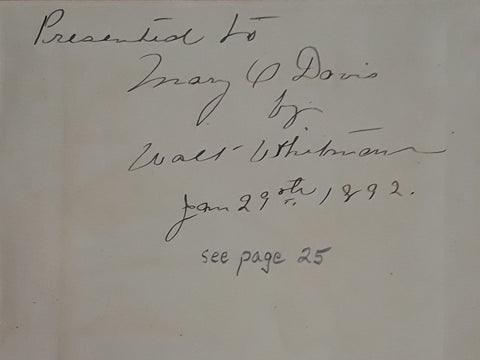 Presented to
Mary O Davis
by
Walt Whitman
Jan 29th, 1892.
see page 25